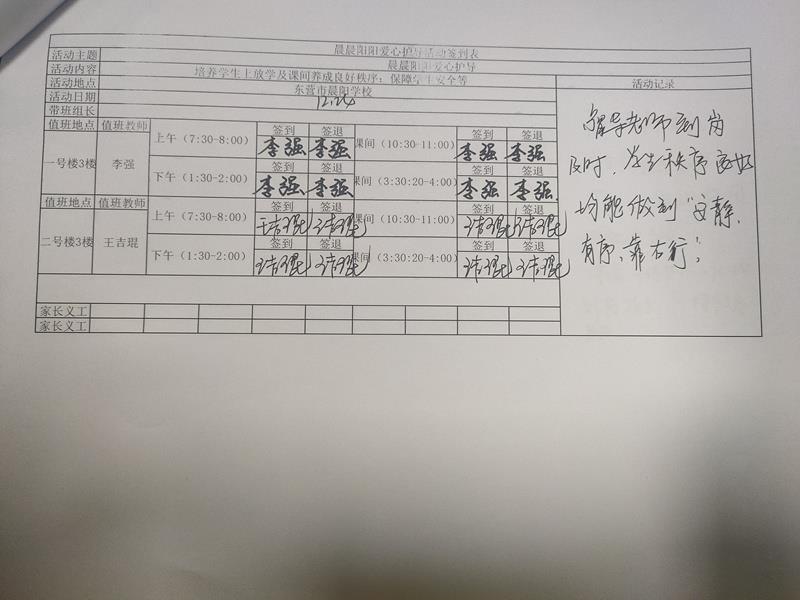 晨晨阳阳爱心护导活动签到表
活动主题 晨晨阳阳爱心护导
活动内容 培养学生上放学及课间养成良好秩序；保障学生安全等
活动地点 东营市晨阳学校
活动日期 12.26
带班组长
活动记录
值班地点 值班教师 签到 签退 签到 签退
一号楼3楼 李强
上午（7:30-8:00） 李强 李强 课间（10:30-11:00） 李强 李强
签到 签退 签到 签退
下午（1:30-2:00） 李强 李强 课间（3:30:20-4:00） 李强 李强
值班地点 值班教师 签到 签退 签到 签退
二号楼3楼 王吉琨
上午（7:30-8:00） 王吉琨 王吉琨 课间（10:30-11:00） 王吉琨 王吉琨
签到 签退 签到 签退
下午（1:30-2:00） 王吉琨 王吉琨 课间（3:30:20-4:00） 王吉琨 王吉琨
家长义工
家长义工
导老师到岗
及时，学生秩序良好
均能做到“安静、
有序、靠右行”。